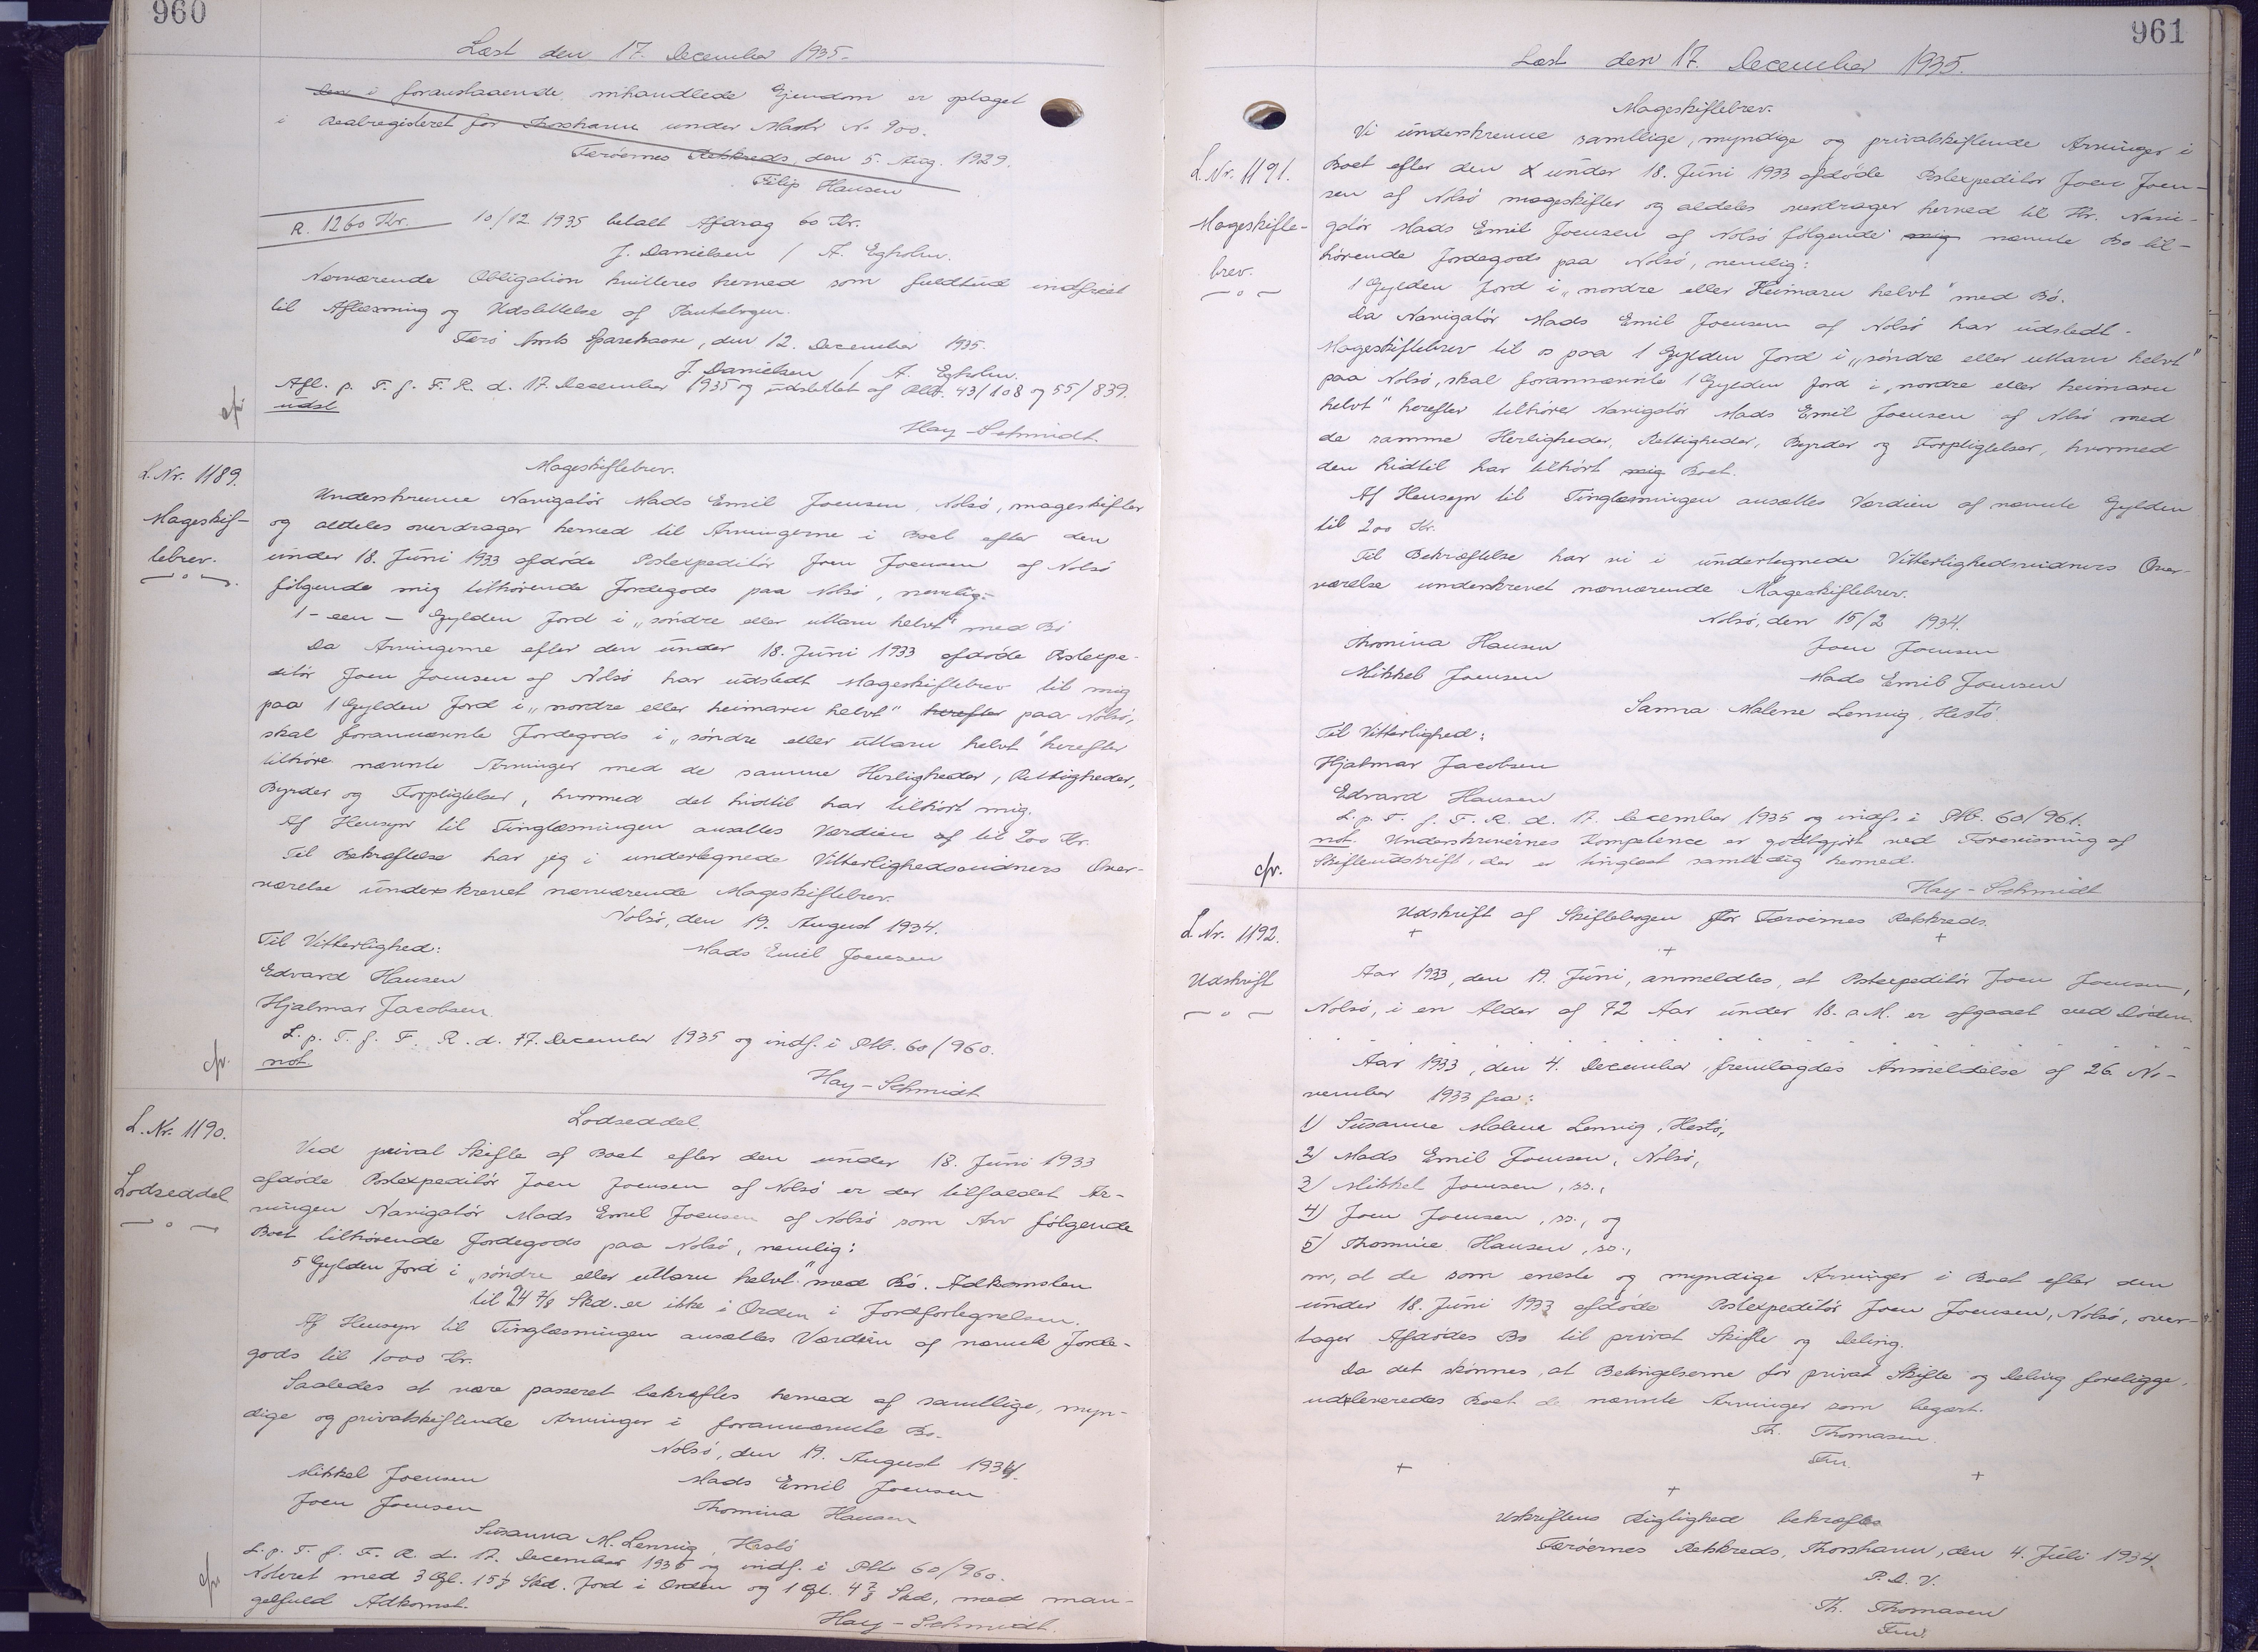 960
Læst den 17. December 1935.
den i foranstaaende omhandlede Ejendom er optaget
i Realregisteret for Thorshavn under Matr No 900.
Færøernes Retskreds, den 5. Aug. 1929.
Filip Hansen
R. 1260 Kr. 10/12 1935 betalt Afdrag 60 Kr.
J. Danielsen / A. Egholm.
Nærværende Obligation kvitteres herved som fuldtud indfriet
til Aflæsning og Udslettelse af Pantebogen.
Færø Amts Sparekasse, den 12. December 1935.
J. Danielsen / A. Egholm.
Afl. p. F. f. F. R. d. 17. December 1935 og udslettet af Ptb. 43/108 og 55/839.
udsl
Hay-Schmidt.
cfr.
L. Nr. 1189.
Mageskif-
tebrev.
Mageskiftebrev.
Underskrevne Navigatör Mads Emil Joensen, Nolsö, mageskifter
og aldeles overdrager herved til Arvingerne i Boet efter den
under 18. Juni 1933 afdöde Postexpeditör Joen Joensen af Nolsö
fölgende mig tilhörende Jordegods paa Nolsö, nemlig:
1 - een - Gylden Jord i „söndre eller uttaru helvt" med Bö
Da Arvingerne efter den under 18. Juni 1933 afdöde Postexpe-
ditör Joen Joensen af Nolsö har udstedt Mageskiftebrev til mig
paa 1 Gylden Jord i „nordre eller heimaru helvt" herefter paa Nolsö,
skal forannævnte Jordegods i „söndre eller uttaru helvt" herefter
tilhöre nævnte Arvinger med de samme Herligheder, Rettigheder,
Byrder og Forpligtelser, hvormed det hidtil har tilhört mig.
Af Hensyn til Tinglæsningen ansættes Værdien af til 200 Kr.
Til Bekræftelse har jeg i undertegnede Vitterlighedsvidners Over-
værelse underskrevet nærværende Mageskiftebrev.
Nolsö, den 19. August 1934.
Til Vitterlighed: Mads Emil Joensen
Edvard Hansen
Hjalmar Jacobsen.
L. p. T. f. F. R. d. 17. December 1935 og indf. i Ptb. 60/960.
not.
Hay-Schmidt
cfr.
L. Nr. 1190.
Lodseddel
Lodseddel.
Ved privat Skifte af Boet efter den under 18. Juni 1933
afdöde Postexpeditör Joen Joensen af Nolsö er der tilfaldet Ar-
vingen Navigatör Mads Emil Joensen af Nolsö som Arv fölgende
Boet tilhörende Jordegods paa Nolsö, nemlig:
5 Gylden Jord i „söndre eller uttaru helvt" med Bö. Adkomsten
til 24 7/8 Skd. er ikke i Orden i Jordfortegnelsen.
Af Hensyn til Tinglæsningen ansættes Værdien af nævnte Jorde-
gods til 1000 Kr.
Saaledes at være passeret bekræftes herved af samtlige, myn-
dige og privatskiftende Arvinger i forannævnte Bo.
Nolsö, den 19. August 1934.
Mikkel Joensen Mads Emil Joensen
Joen Joensen Thomina Hansen
Susanna M. Lenvig, Hestö
L. p. T. f. F. R. d. 17. December 1935 og indf. i Ptb 60/960.
Noteret med 3 Gl. 15 1/8 Skd. Jord i Orden og 1 Gl. 4 7/8 Skd, med man-
gelfuld Adkomst.
Hay-Schmidt.
cfr
961
Læst den 17. December 1935.
L. Nr. 1191.
Mageskifte-
brev.
Mageskiftebrev.
Vi underskrevne samtlige, myndige og privatskiftende Arvinger i
Boet efter den under 18. Juni 1933 afdöde Postexpeditör Joen Joen-
sen af Nolsö mageskifter og aldeles overdrager herved til Hr. Navi-
gatör Mads Emil Joensen af Nolsö fölgende mig nævnte Bo til-
hörende Jordegods paa Nolsö, nemlig:
1 Gylden Jord i „nordre eller Heimaru helvt" med Bö.
Da Navigatör Mads Emil Joensen af Nolsö har udstedt
Mageskiftebrev til os paa 1 Gylden Jord i „söndre eller uttaru helvt"
paa Nolsö, skal forannævnte 1 Gylden Jord i „nordre eller heimaru
helvt" herefter tilhöre Navigatör Mads Emil Joensen af Nolsö med
de samme Herligheder, Rettigheder, Byrder og Forpligtelser, hvormed
den hidtil har tilhört mig Boet.
Af Hensyn til Tinglæsningen ansættes Værdien af nævnte Gylden
til 200 Kr.
Til Bekræftelse har vi i undertegnede Vitterlighedsvidners Over-
værelse underskrevet nærværende Mageskiftebrev.
Nolsö, den 15/2 1934.
Thomina Hansen Joen Joensen
Mikkel Joensen Mads Emil Joensen
Sanna Malene Lenvig, Hestö.
Til Vitterlighed:
Hjalmar Jacobsen
Edvard Hansen
L. p. T. f. F. R. d. 17. December 1935 og indf. i Ptb. 60/961.
not. Underskrivernes Kompetence er godtgjort ved Forevisning af
Skifteudskrift, der er tinglæst samtidig hermed.
Hay-Schmidt
cfr.
L. Nr. 1192.
Udskrift
Udskrift af Skiftebogen for Færöernes Retskreds.
Aar 1933, den 19. Juni, anmeldtes, at Postexpeditör Joen Joensen,
Nolsö, i en Alder af 72 Aar under 18. a. M. er afgaaet ved Döden.
Aar 1933, den 4. December, fremlagdes Anmeldelse af 26 No-
vember 1933 fra:
1) Susanne Malene Lenvig, Hestö,
2) Mads Emil Joensen, Nolsö,
3) Mikkel Joensen, ss.,
4) Joen Joensen, ss., og
5) Thomine Hansen, ss.,
om, at de som eneste og myndige Arvinger i Boet efter den
under 18. Juni 1933 afdöde Postexpeditör Joen Joensen, Nolsö, over-
tager Afdödes Bo til privat Skifte og Deling.
Da det skönnes, at Betingelserne for privat Skifte og Deling foreligge,
udleveredes Boet de nævnte Arvinger som begært.
Th. Thomasen.
Fm.
Uskriftens Rigtighed bekræftes
Færöernes Retskreds, Thorshavn, den 4. Juli 1934.
P. D. V.
Th. Thomasen
Fm.